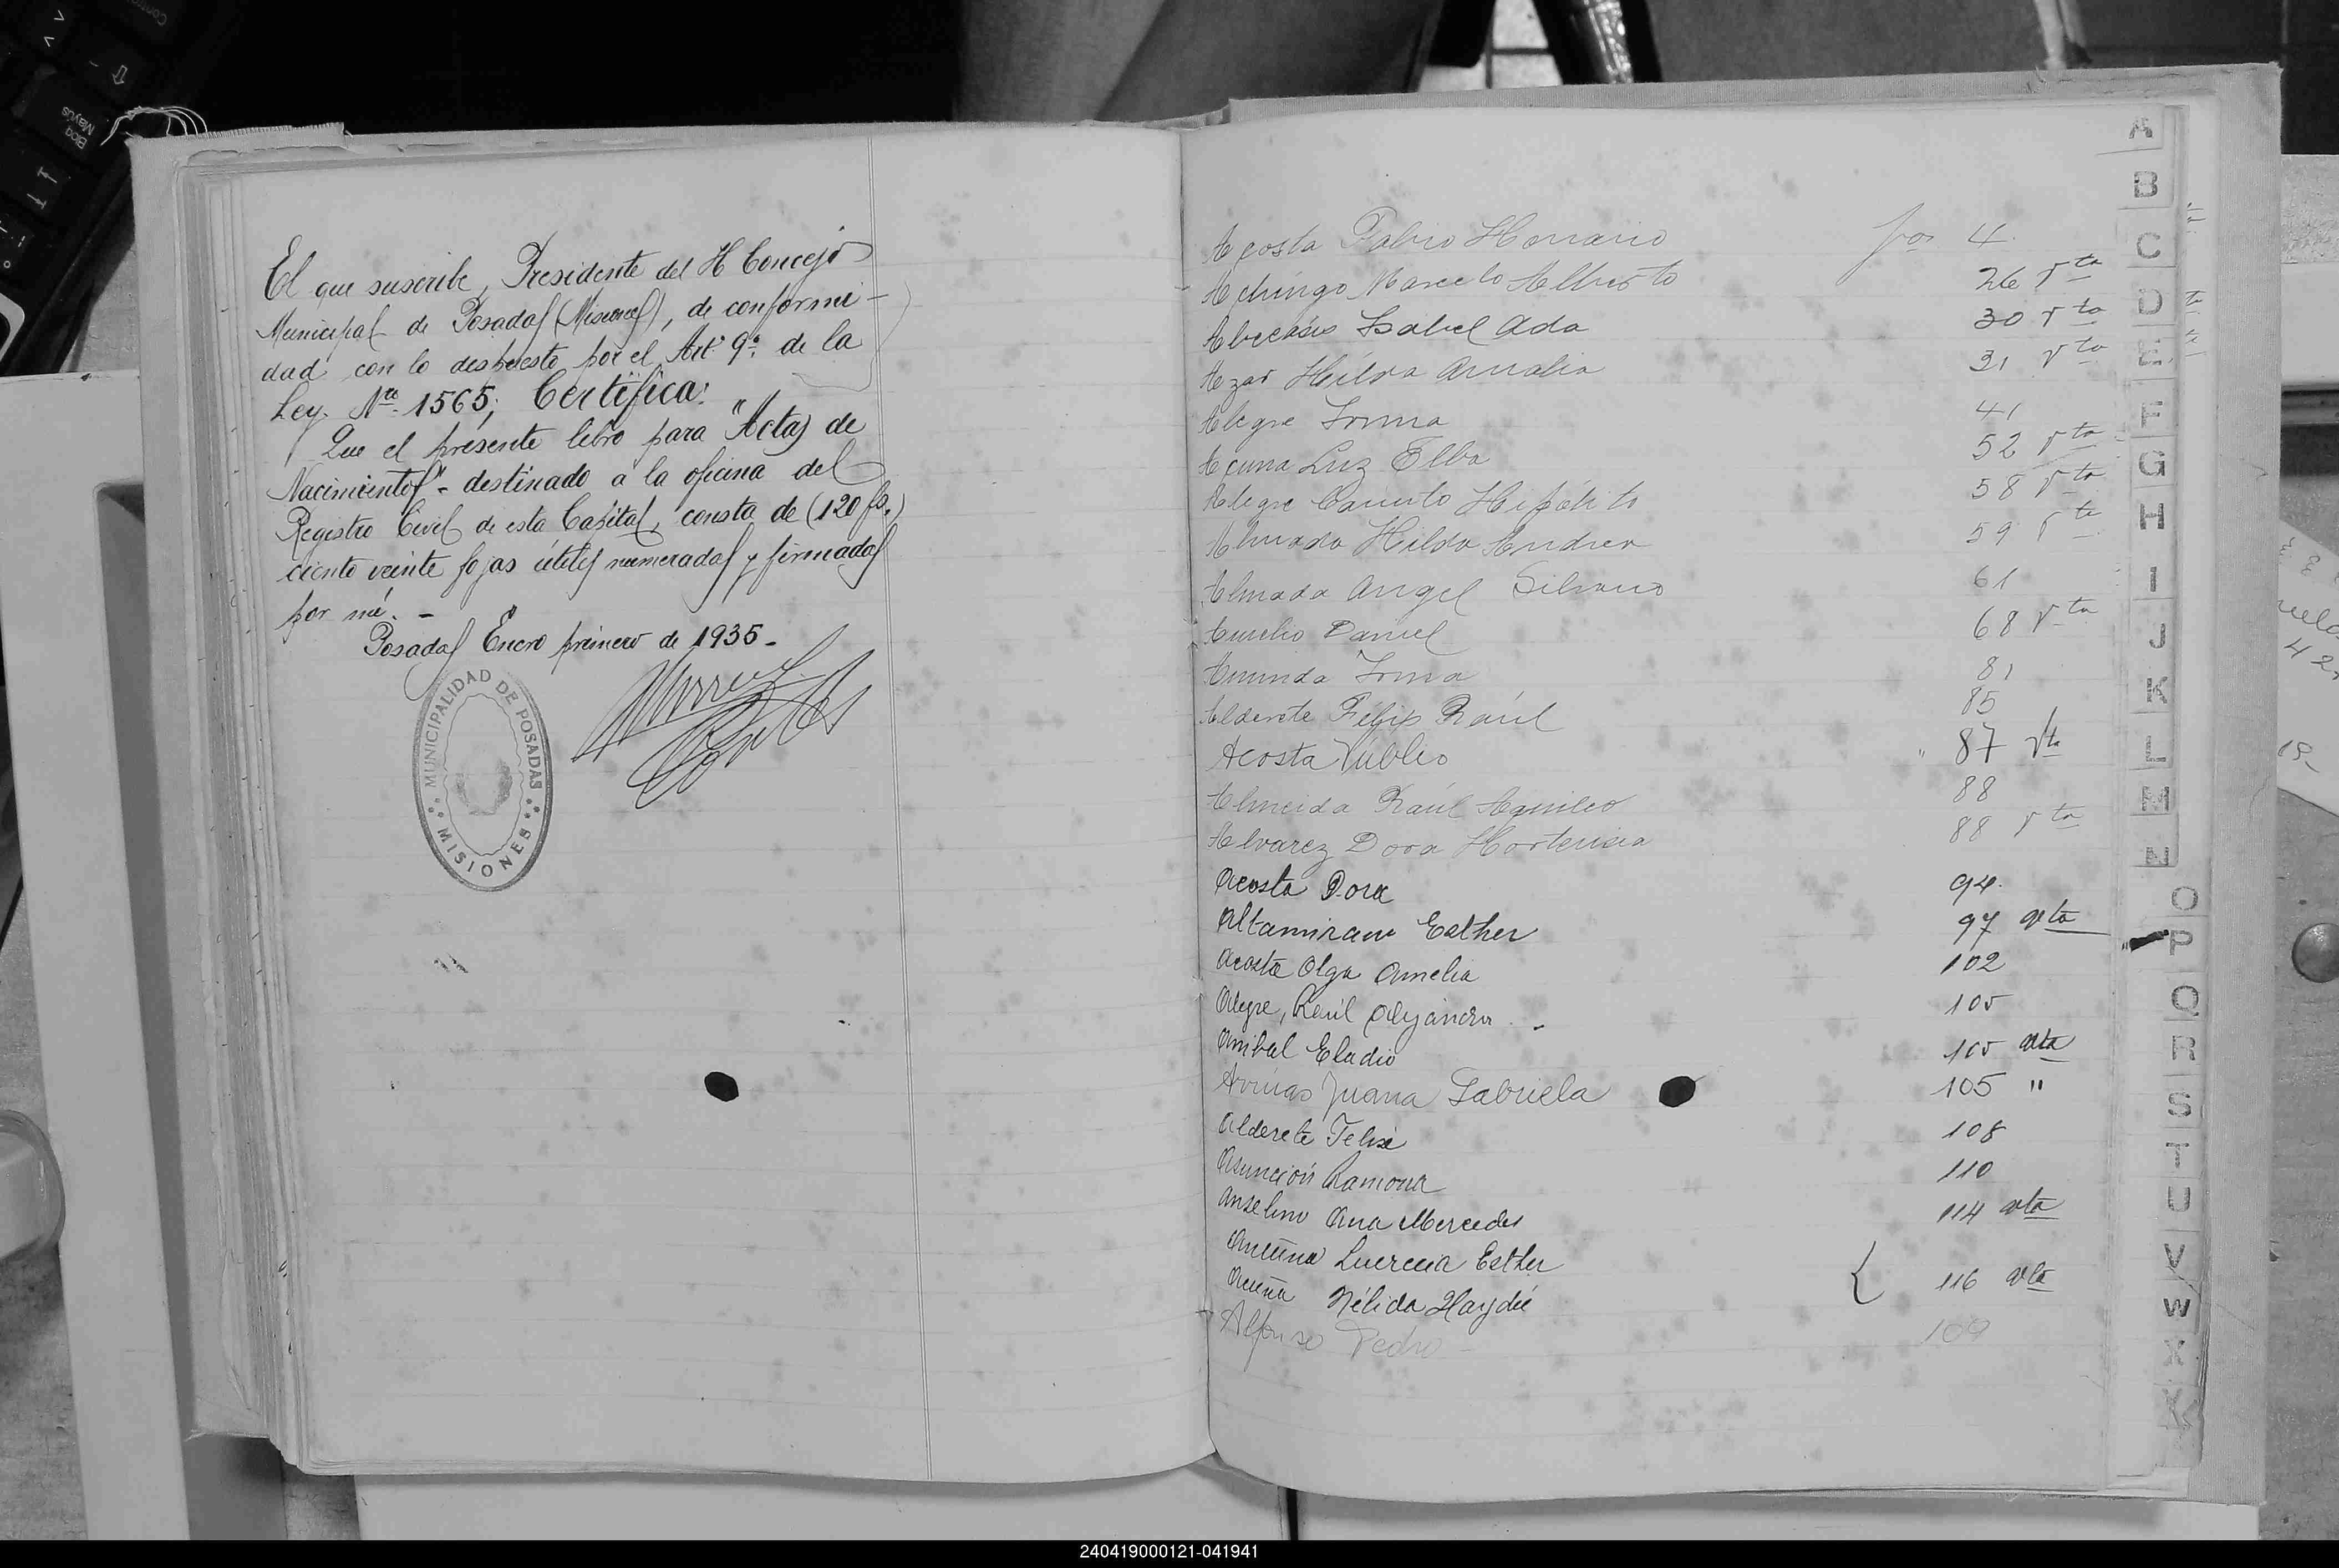 El que suscribe, Presidente del H Concejo
Municipal de Posadas (Misiones), de conformi-
dad con lo dispuesto por el Art. 9º de la
Ley. Nº 1565; Certifica:
Que el presente libro para "Actas de
Nacimientos" - destinado a la oficina del
Registro Civil de esta Capital, consta de (120 fs.)
ciento veinte fojas útiles numeradas y firmadas
por mí. -
Posadas Enero primero de 1935-
MUNICIPALIDAD DE POSADAS
MISIONES
Acosta Fabio Honorio 4
Marcelo Alberto 26 vta
Isabel Ada 30 vta
Hilda Amalia 31 vta
Alegre Irma 41
Acuna Luz Elba 52 vta
Alegre Hipólito 58 vta
Almada Hilda Andrea 59 vta
Almada Angel Silvano 61
Aurelio Daniel 68 vta
Irma 81
Alderete Raúl 85
Acosta Publio 87 vta
Almeida Raúl 88
Alvarez Dora Hortensia 88 vta
Acosta Dora 94
Altamirano Esther 97 vta
Acosta Olga Amelia 102
Alegre, Raúl Alejandro 105
Anibal Eladio 105 vta
Juana Gabriela 105 "
Alderete Felisa 108
Asunción Ramona 110
Anselmo Ana Mercedes 114 vta
Lucrecia Esther
Acuña Nélida Haydée 116 vta
Alfonso Pedro 109
A
B
C
D
E
F
G
H
I
J
K
L
M
N
O
P
Q
R
S
T
U
V
W
X
Y
240419000121-041941